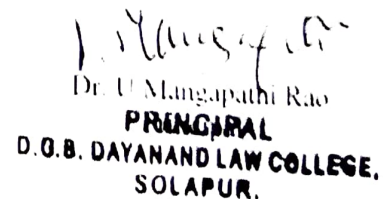 Dr. U Mangapathi Rao
PRINCIPAL
D.G.B. DAYANAND LAW COLLEGE,
SOLAPUR.